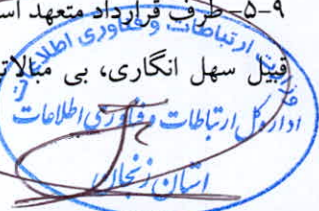 ۵-۹- طرف قرارداد متعهد اس
قبیل سهل انگاری، بی مبالاتی
وزارت ارتباطات و فناوری اطلاعات
اداره کل ارتباطات و فناوری اطلاعات
استان زنجان